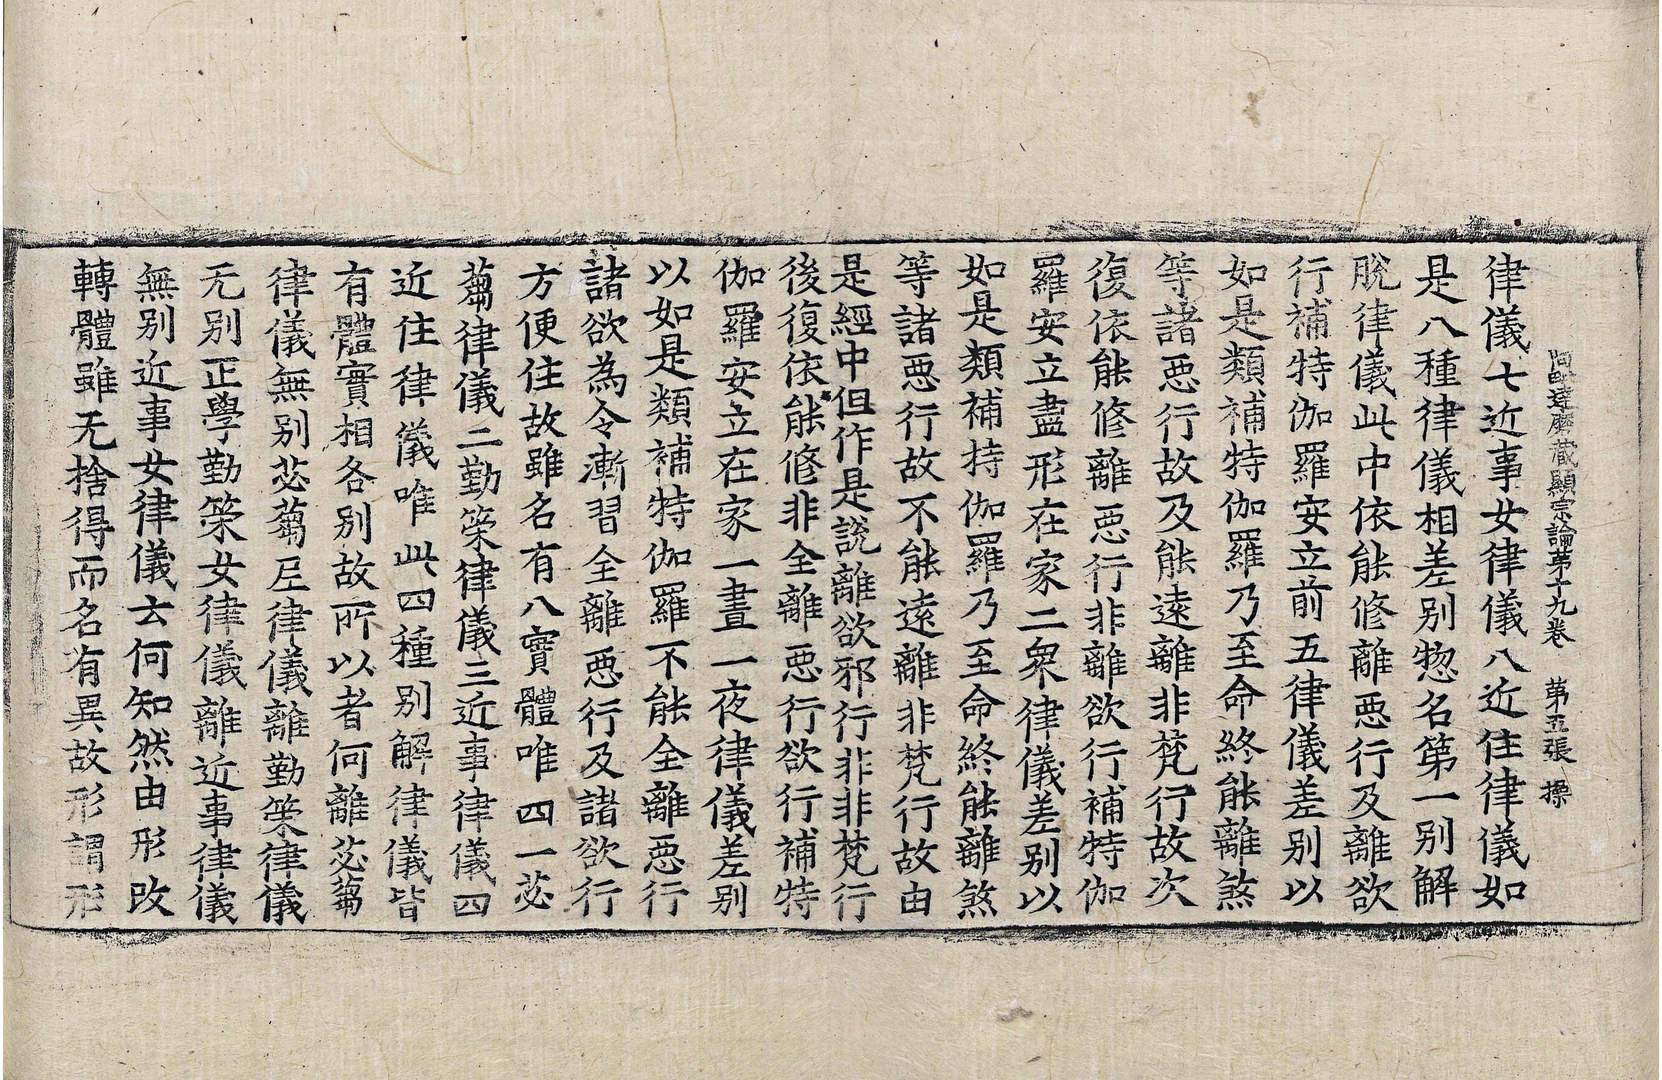 阿毗達磨藏顯宗論第十九卷　第五張　操
律儀七近事女律儀八近住律儀如
是八種律儀相差別惣名第一別解
脫律儀此中依能修離惡行及離欲
行補特伽羅安立前五律儀差別以
如是類補特伽羅乃至命終能離煞
等諸惡行故及能遠離非梵行故次
復依能修離惡行非離欲行補特伽
羅安立盡形在家二衆律儀差別以
如是類補特伽羅乃至命終能離煞
等諸惡行故不能遠離非梵行故由
是經中但作是說離欲邪行非非梵行
後復依能修非全離惡行欲行補特
伽羅安立在家一晝一夜律儀差別
以如是類補特伽羅不能全離惡行
諸欲為令漸習全離惡行及諸欲行
方便住故雖名有八實體唯四一苾
蒭律儀二勤策律儀三近事律儀四
近住律儀唯此四種別解律儀皆
有體實相各別故所以者何離苾蒭
律儀無別苾蒭尼律儀離勤策律儀
无別正學勤策女律儀離近事律儀
無別近事女律儀云何知然由形改
轉體雖无捨得而名有異故形謂形